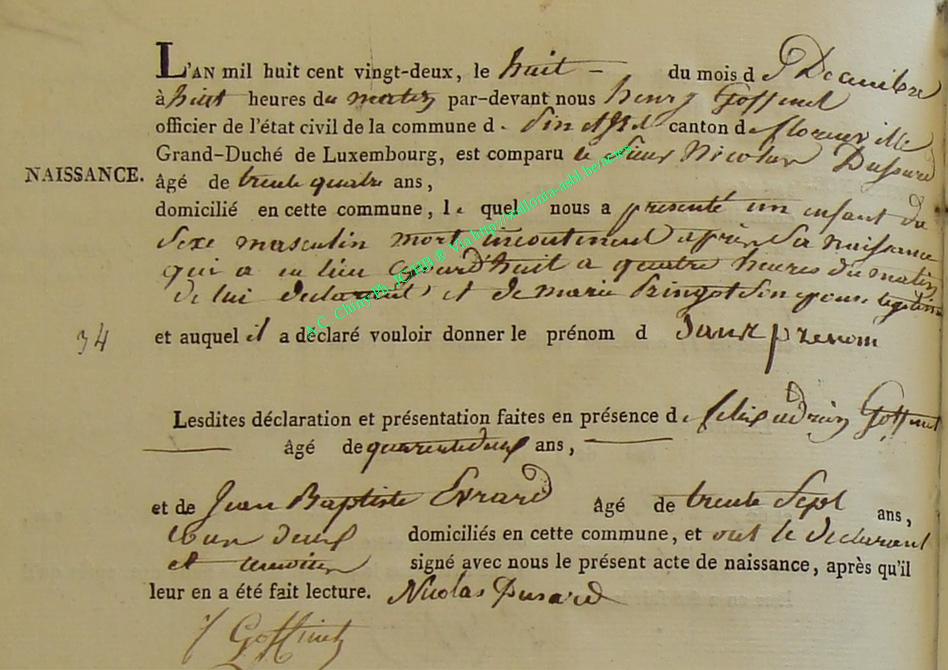 L'AN mil huit cent vingt-deux, le huit - du mois d Decembre
à huit heures du matin par-devant nous henry Goffinet
officier de l'état civil de la commune d canton de florenville
Grand-Duché de Luxembourg, est comparu le Sieur Nicolas Dussard
NAISSANCE.
âgé de trente quatre ans,
domicilié en cette commune, le quel nous a presenté un enfant du
Sexe masculin mort incontinent après Sa naissance
qui a eu lieu aujourd'huit a quatre heures du matin
de lui declarant et de marie Pringot Son epouse legitime
34
et auquel il a déclaré vouloir donner le prénom d Sans prenom
Lesdites déclaration et présentation faites en présence de Goffinet
âgé de quarente deux ans,
et de Jean Baptiste Evrard âgé de trente Sept ans,
domiciliés en cette commune, et ont le declarant
et temoins signé avec nous le présent acte de naissance, après qu'il
leur en a été fait lecture. Nicolas Dusard
Goffinet
A.C. Chiny Ph. ® Via http://wallonia-asbl.be/